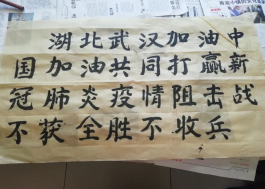 湖北武汉加油中
国加油共同打赢新
冠肺炎疫情阻击战
不获全胜不收兵